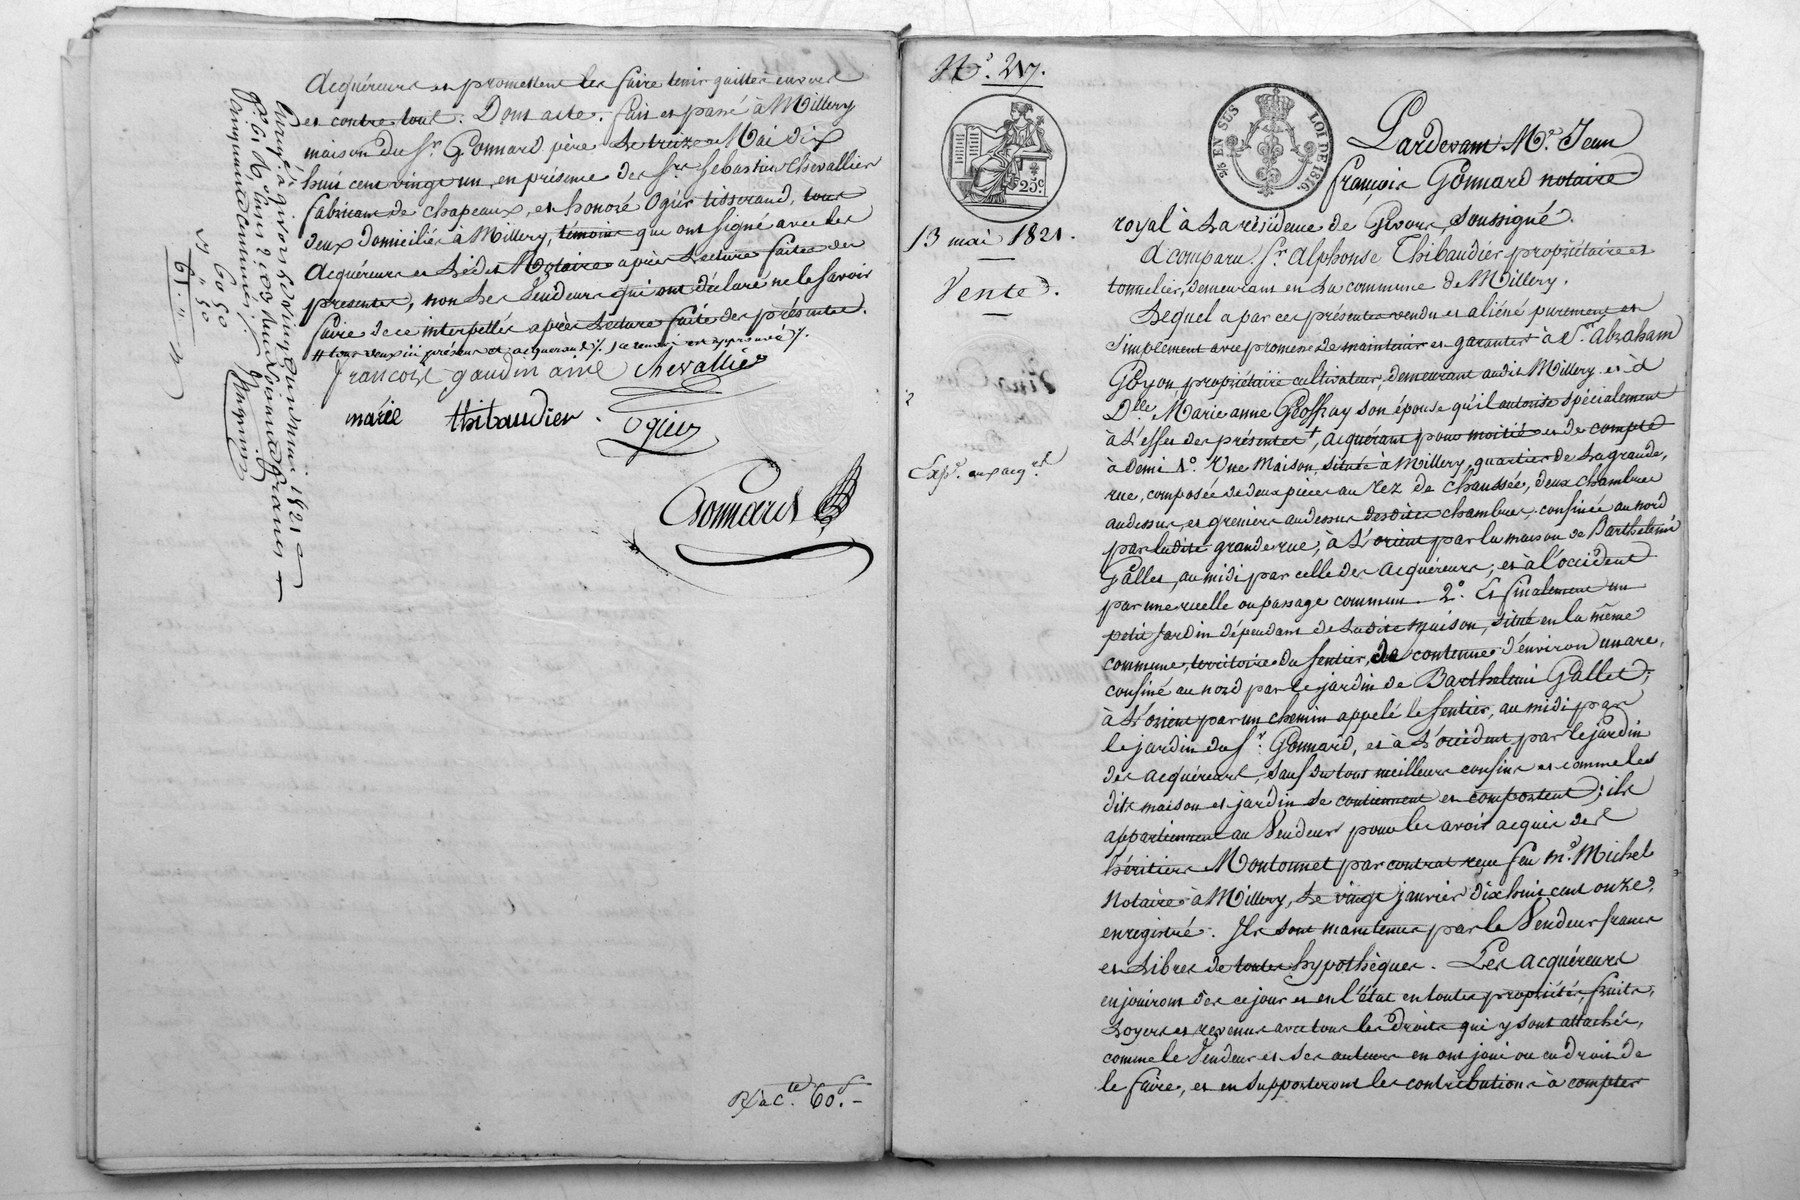 Acquéreurs en promettent les faire tenir quittes envers
et contre tout. Dont acte. fait et passé à Millery
maison du Sr. Gonnard père Le treize Mai dix
huit cent vingt un, en présence des Srs. Sebastien Chevallier
fabricant de chapeaux, et honoré Ogier tisserand, tous
deux domiciliés à Millery, témoins qui ont signé avec les
Acquéreurs et Ledit Notaire après Lecture faite des
présentes, non Les Vendeurs qui ont déclaré ne le savoir
faire de ce interpellés après Lecture faite des présentes.
françois gaudin ainé chevallier
mariè thibaudier
Ogier
Gonnard
Enregistré à givors le vingt un mai 1821
60 50
" 50
61. "
Rf. ac.te 60.-
No. 217.
25c
5es EN SUS LOI DE 1816.
13 mai 1821.
Vente.
Exp.on aux acq.rs
Pardevant Me. Jean
françois Gonnard notaire
royal à La résidence de Givors, soussigné.
A comparu Sr. Alphonse Thibaudier propriétaire et
tonnelier, demeurant en La commune de Millery.
Lequel a par ces présentes vendu et aliéné purement et
simplement avec promesse de maintenir et garantir à Sr. Abraham
Goyon propriétaire cultivateur, demeurant audit Millery et à
Dlle Marie anne Geoffray son épouse qu'il autorise spécialement
à L'effet des présentes +, acquérant pour moitié et de compte
à demi 1o. Une Maison située à Millery, quartier de La grande,
rue, composée de deux pièces au rez de chaussée, deux chambres
au dessus, et greniers au dessus desdites chambres, confinée au nord
par ladite grande rue, à L'orient par la maison de Barthelemi
Gallet, au midi par celle des acquéreurs, et à l'occident
par une ruelle ou passage commun. 2o. Et finalement un
petit Jardin dépendant de Ladite maison, situé en la même
commune, territoire du Sentier, de contenue d'environ un are,
confiné au nord par le jardin de Barthelemi Gallet,
à L'orient par un chemin appelé le Sentier, au midi par
le jardin du Sr. Gonnard, et à L'occident par le jardin
des acquéreurs, sauf du tout meilleurs confins et comme les
dits maison et jardin se contiennent et comportent; ils
appartiennent au Vendeur pour les avoir acquis des
héritiers Montonnet par contrat reçu feu Me. Michel
Notaire à Millery, Le vingt janvier dix huit cent onze,
enregistré. Ils sont maintenus par le Vendeur francs
et Libres de toutes hypothèques. Les acquéreurs
en jouiront dès ce jour et en l'état en toutes propriétés, fruits,
Loyers et revenus avec tous les droits qui y sont attachés,
comme le Vendeur et Ses auteurs en ont joui ou eu droit de
le faire, et en supporteront les contributions à compter